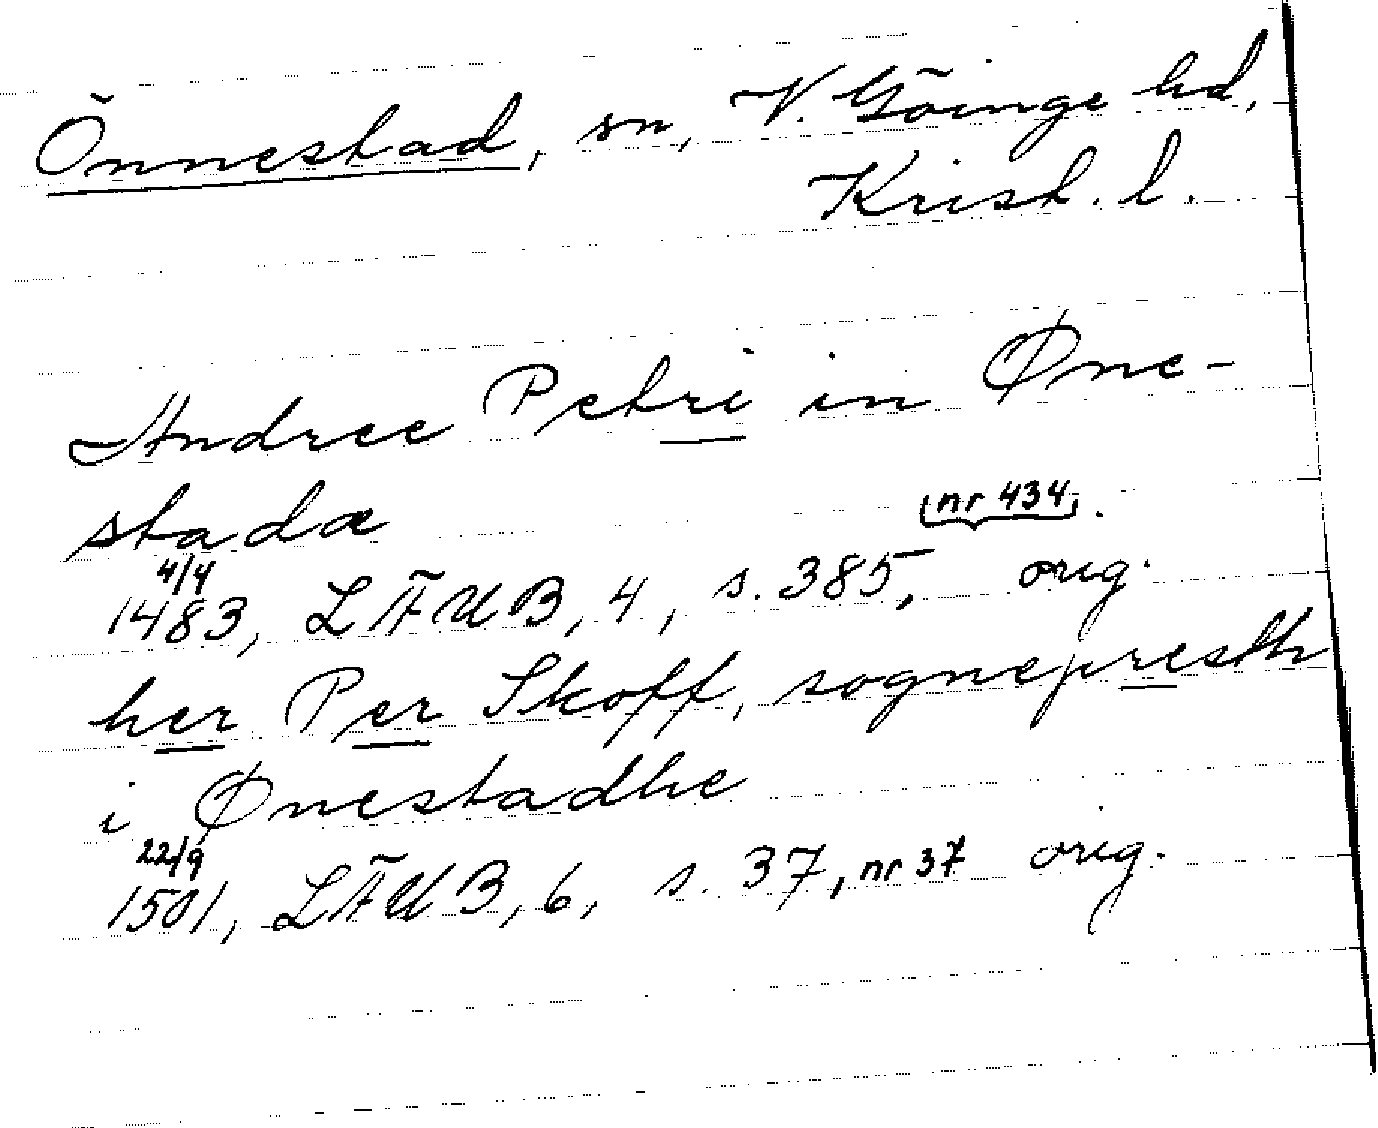 Önnestad, sn, V. Göinge hd,
Krist. l.
Andree Petri in Øne-
stadæ
nr 434.
4/4
1483, LÄUB, 4, s. 385, orig.
her Per Skoff, sognepresth
i Ønestadhe
22/9
1501, LÄUB, 6, s. 37, nr 37 orig.